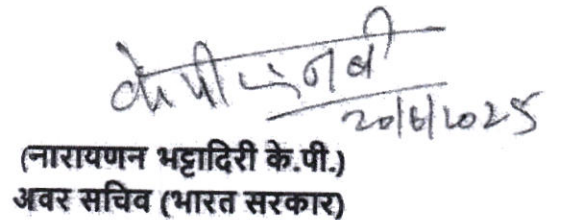 के पी एन बी
20/6/2025
(नारायणन भट्टादिरी के.पी.)
अवर सचिव (भारत सरकार)